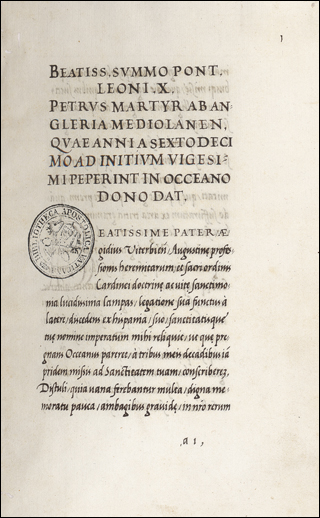 1
BEATISS. SVMMO PONT.
LEONI. X.
PETRVS MARTYR AB AN-
GLERIA MEDIOLANEN,
QVAE ANNI A SEXTODECI
MO AD INITIVM VIGESI-
MI PEPERINT IN OCCEANO
DONO DAT.
EATISSIME PATER Æ
gidius Viterbien̄ Augustinę profes
sionis heremitarum, et sacri ordinis
Cardineï doctrinę ac vitę sanctimo
nia lucidissima lampas, legatione sua functus à
latere, discedens ex hispania, suo, sanctitatisque
tuę nomine imperatum mihi reliquit, ut quę prę-
gnans Oceanus pareret, à tribus meis decadibus ia
pridem missis ad Sanctitatem tuam, conscriberem,
Distuli, quia vana ferebantur multa, digna me-
moratu pauca, ambagibus gravidę, in nr̄o rerum
a 1,